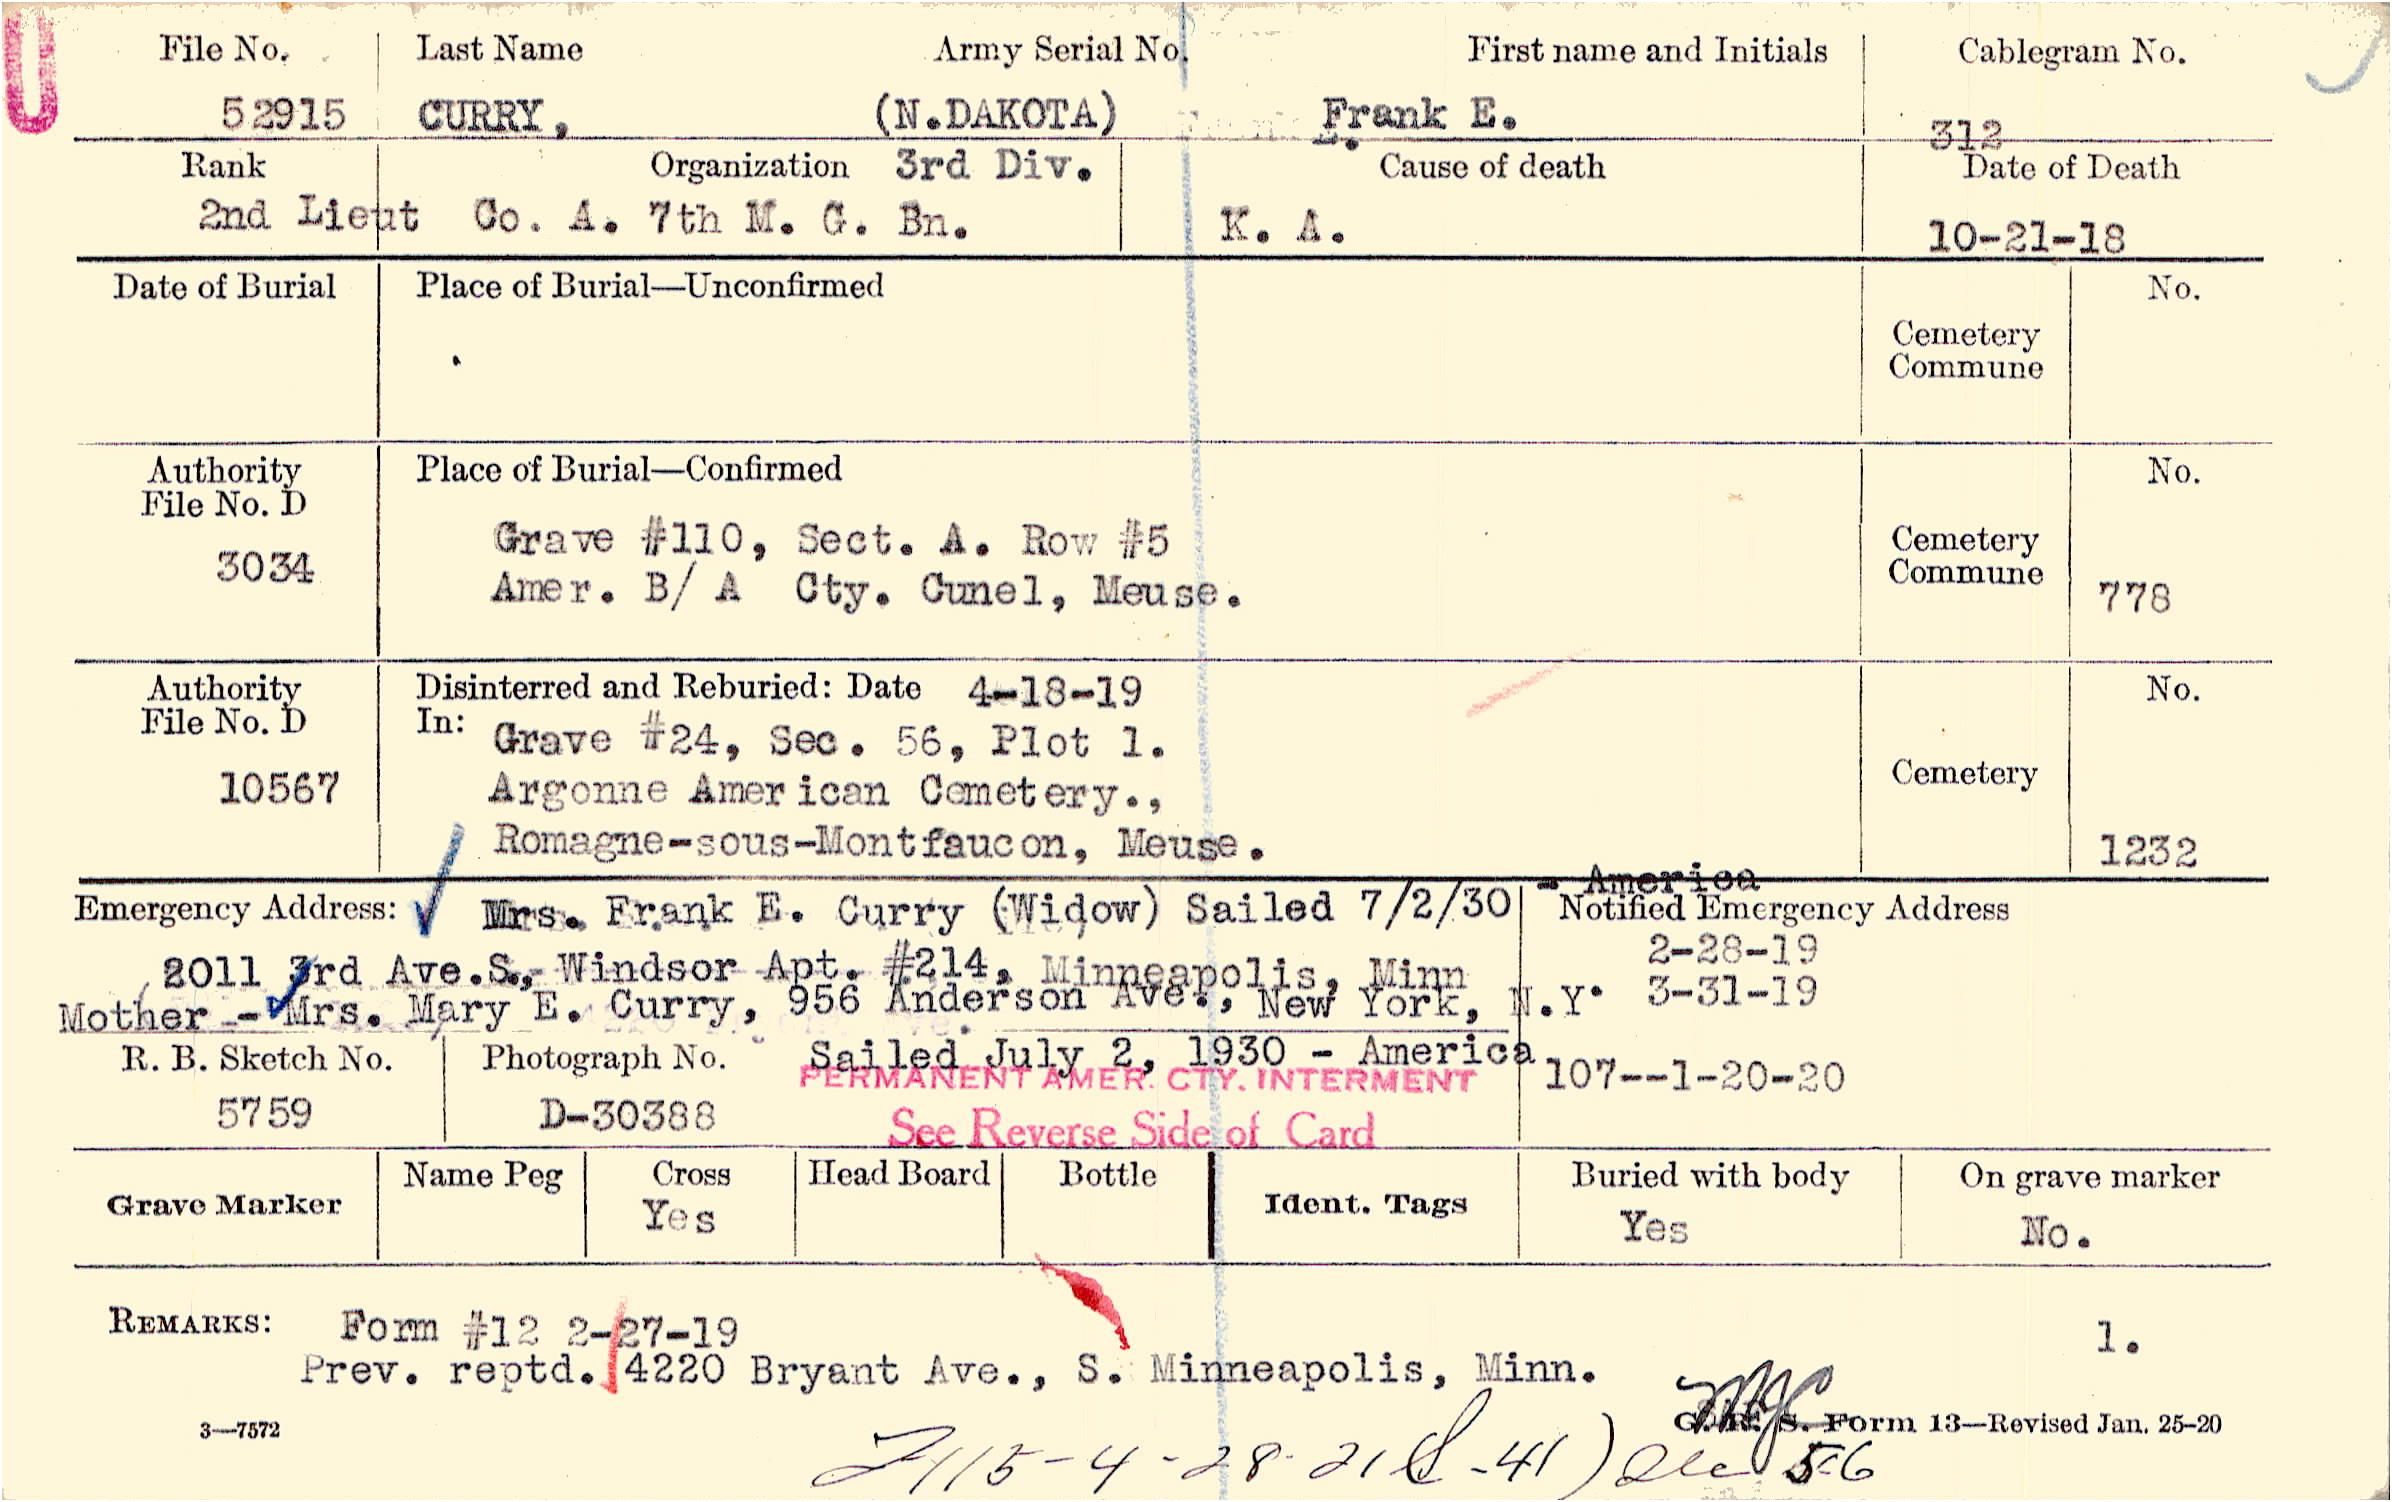 File No. Last Name Army Serial No. First name and Initials Cablegram No.
52915 CURRY, (N.DAKOTA) Frank E. 312
Rank Organization 3rd Div. Cause of death Date of Death
2nd Lieut Co. A. 7th M. G. Bn. K. A. 10-21-18
Date of Burial Place of Burial—Unconfirmed No.
Cemetery
Commune
Authority Place of Burial—Confirmed No.
File No. D
3034 Grave #110, Sect. A. Row #5 Cemetery
Amer. B/ A Cty. Cunel, Meuse. Commune 778
Authority Disinterred and Reburied: Date 4-18-19 No.
File No. D In: Grave #24, Sec. 56, Plot 1.
10567 Argonne American Cemetery., Cemetery
Romagne-sous-Montfaucon, Meuse. 1232
Emergency Address: Mrs. Frank E. Curry (Widow) Sailed 7/2/30 - America
Notified Emergency Address
2-28-19
2011 3rd Ave.S., Windsor Apt. #214, Minneapolis, Minn
Mother - Mrs. Mary E. Curry, 956 Anderson Ave., New York, N.Y. 3-31-19
R. B. Sketch No. Photograph No. Sailed July 2, 1930 - America
PERMANENT AMER. CTY. INTERMENT 107--1-20-20
5759 D-30388 See Reverse Side of Card
Grave Marker Name Peg Cross Head Board Bottle Ident. Tags Buried with body On grave marker
Yes Yes No.
REMARKS: Form #12 2-27-19 1.
Prev. reptd. 4220 Bryant Ave., S. Minneapolis, Minn.
3—7572 G. R. S. Form 13—Revised Jan. 25-20
115-4-28-21 -41) 56